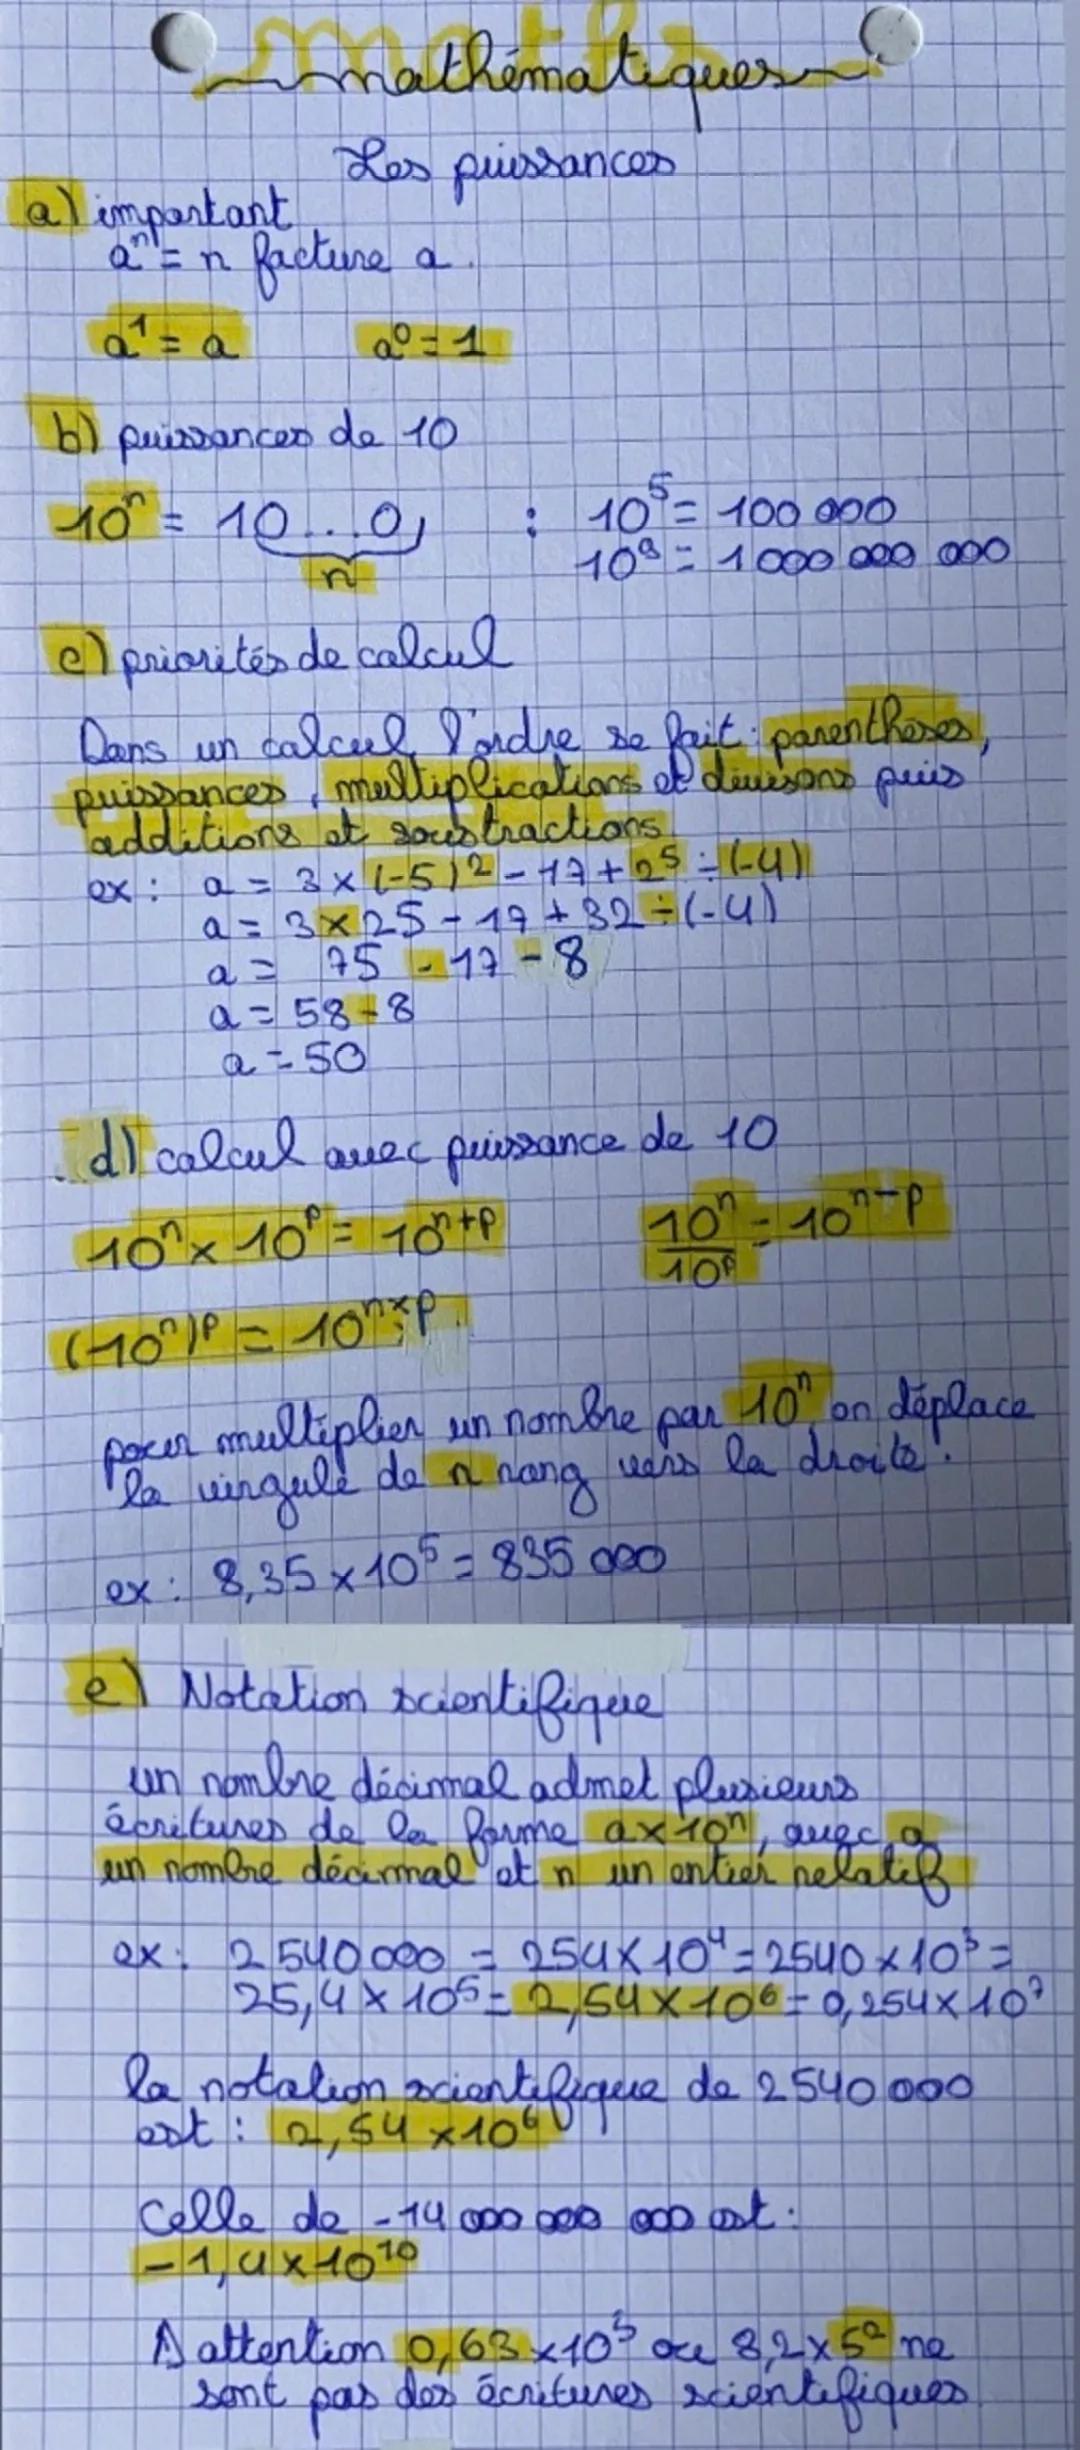 maths
mathématiques
Les puissances
a) important
aⁿ = n facture a.
a¹ = a a⁰ = 1
b) puissances de 10
10ⁿ = 10...0, : 10⁵ = 100 000
n 10⁹ = 1 000 000 000
c) priorités de calcul
Dans un calcul l'ordre se fait : parenthèses,
puissances, multiplications et divisons puis
additions et soustractions.
ex : a = 3 × (-5)² - 17 + 2⁵ ÷ (-4)
a = 3 × 25 - 17 + 32 ÷ (-4)
a = 75 - 17 - 8
a = 58 - 8
a = 50
d) calcul avec puissance de 10
10ⁿ × 10ᵖ = 10ⁿ⁺ᵖ 10ⁿ/10ᵖ = 10ⁿ⁻ᵖ
(10ⁿ)ᵖ = 10ⁿ˟ᵖ
pour multiplier un nombre par 10ⁿ, on déplace
la virgule de n rang vers la droite.
ex : 8,35 × 10⁵ = 835 000
e) Notation scientifique
un nombre décimal admet plusieurs
écritures de la forme a × 10ⁿ, avec a
un nombre décimal et n un entier relatif
ex : 2 540 000 = 254 × 10⁴ = 2540 × 10³ =
25,4 × 10⁵ = 2,54 × 10⁶ = 0,254 × 10⁷
la notation scientifique de 2 540 000
est : 2,54 × 10⁶
Celle de -14 000 000 000 est :
-1,4 × 10¹⁰
⚠ attention 0,63 × 10³ ou 8,2 × 5² ne
sont pas des écritures scientifiques.